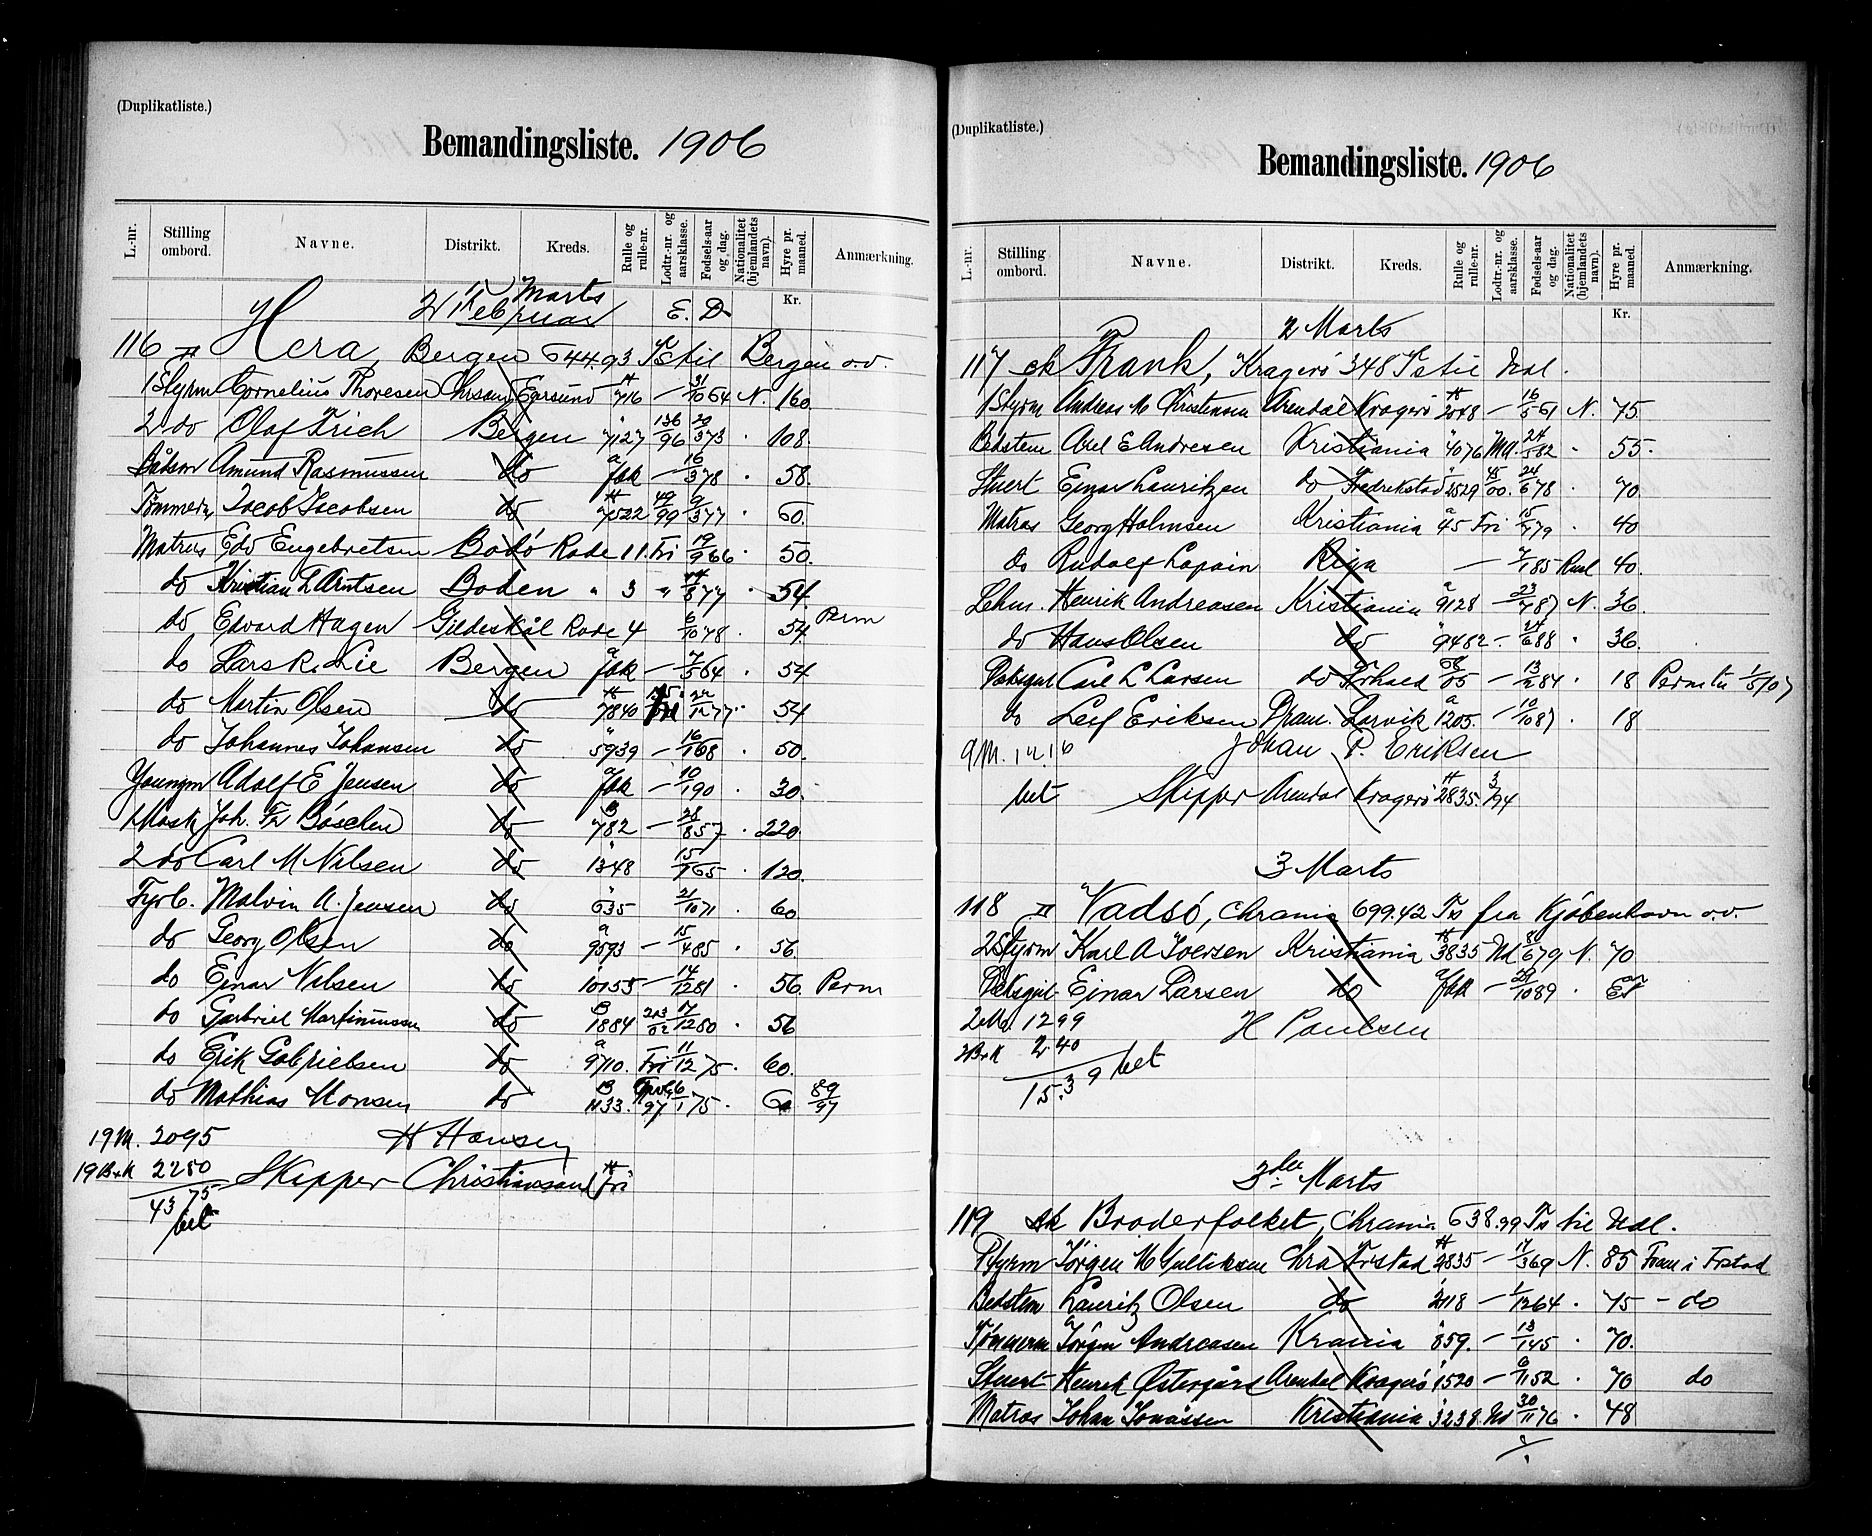 (Duplikatliste.)
Bemandingsliste. 1906
L.-nr. Stilling ombord. Navne. Distrikt. Kreds. Rulle og rulle-nr. Lodtr.-nr. og aarsklasse. Fødsels-aar og dag. Nationalitet (hjemlandets navn). Hyre pr. maaned. Anmærkning.
Kr.
2 Februar Marts E. D
116 Hera, Bergen 644.93 Ts til Bergen o.v.
1 Styrm Cornelius Thoresen Chrsand Egersund 716 — 31/10 64 N. 160
2 do Olaf Frich Bergen 7127 136/96 20/3 73 · 108
Bådsm Amund Rasmussen do fbk — 16/3 78 · 58.
Tømmerm Jacob Jacobsen do 7522 49/99 9/3 77 · 60.
Matros Edv Engebretsen Bodö Rode 11. Fri 19/9 66 · 50.
do Kristian L Arntsen Boden " 3 " 14/8 77 · 54.
do Edvard Hagen Gildeskål Rode 4 6/10 78 · 54. Perm
do Lars R. Lie Bergen fbk — 7/5 64 · 54
do Martin Olsen do 7840 12 77 · 54
do Johannes Johansen do 5939 — 16/1 68 · 50.
Youngm Adolf E Jensen do fbk — 10/1 90 · 30.
1 Mask Joh. Fr Böschen do 782 — 28/8 57 · 220
2 do Carl M Nilsen do 1348 15/9 65 · 120.
Fyrb. Malvin A. Jensen do 635 21/10 71 · 60
do Georg Olsen do 9593 — 15/4 85 · 56
do Einar Nilsen do 10055 — 14/12 81 · 56. Perm
do Gabriel Martinussen do 1884 213/02 17/12 80 · 56
do Erik Gabrielsen do 9710. Fri 11/12 75 · 60.
do Mathias Monsen do 1133. 97 6/1 75 · 60 89/97
19 M. 2095 H Hansen
19 B+K 2280 Skipper Christiansand Fri
43 75
bet
(Duplikatliste.)
Bemandingsliste. 1906
L.-nr. Stilling ombord. Navne. Distrikt. Kreds. Rulle og rulle-nr. Lodtr.-nr. og aarsklasse. Fødsels-aar og dag. Nationalitet (hjemlandets navn). Hyre pr. maaned. Anmærkning.
Kr.
2 Marts
117 sk Frank, Kragerö 348 Ts til Udl.
1 Styrm Andreas M Kristensen Arendal Kragerö 2048 — 16/5 61 N. 75
Bedstem Axel E Andresen Kristiania 4076 24/5 82 · 55.
Stuert Einar Lauritzen do Fredrikstad 2529 45/00. 24/6 78 · 70.
Matros Georg Holmsen Kristiania 45 Fri 15/4 79 · 40
do Rudolf Lapain Riga — 7/1 85 Rusl 40.
Lehm. Henrik Andreasen Kristiania 9128 — 23/7 87 N. 36.
do Hans Olsen do 9482 — 24/6 88 · 36.
Dæksgut Carl L Larsen do 05 — 13/2 84 · 18 Perm til 1/5 07
do Leif Eriksen Dram. Larvik 1205. — 10/10 87 · 18
9 M. 12.16 Johan P. Eriksen
bet Skipper Arendal Kragerö 2835 3/94
3 Marts
118 Vadsö, Chrania 699.42 Ts fra Kjöbenhavn o.v.
2 Styrm Karl A Iversen Kristiania 3835 Ud 8/6 79 N. 70
Dæksgut Einar Larsen do fbk — 29/10 89 ·
2 M. 1299 H Paulsen
2 B+K 2 40
15.39 bet
3die Marts
119 sk Broderfolket, Chrania 638.99 Ts til Udl.
1 Styrm Jörgen M Gulliksen Chra Frstad 2835 — 17/3 69 N. 85 Frem i Frstad
Bedstem Lauritz Olsen do 2118 — 1/12 64 · 75 – do
Tömmerm Jörgen Andreasen Krania 859. — 13/1 45 · 70.
Stuert Henrik Østergård Arendal Kragerö 1520 — 6/11 52 · 70 do
Matros Johan Jonassen Kristiania 3238 Ud 30/11 76 · 48